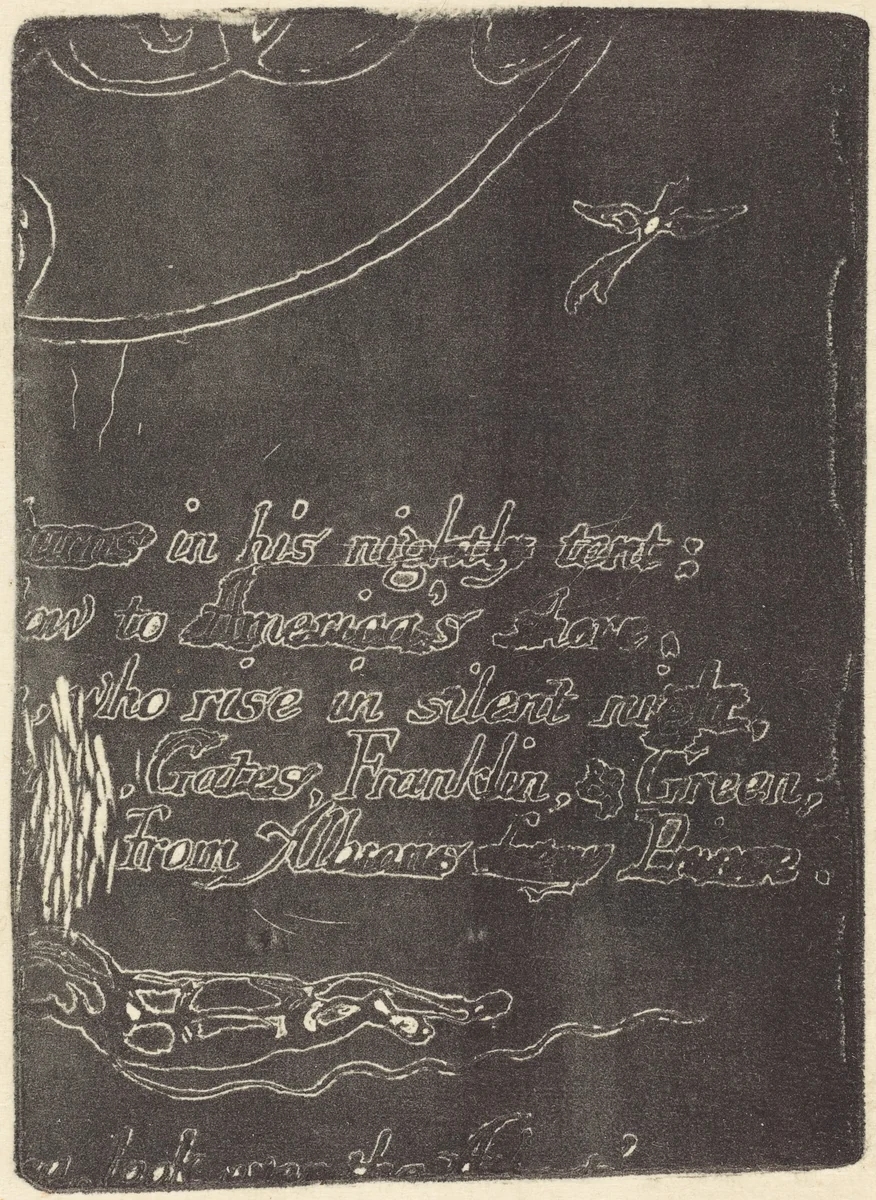 burns in his nightly tent:
low to America's shore,
who rise in silent night,
, Gates, Franklin, & Green,
from Albions fiery Prince.
look over the